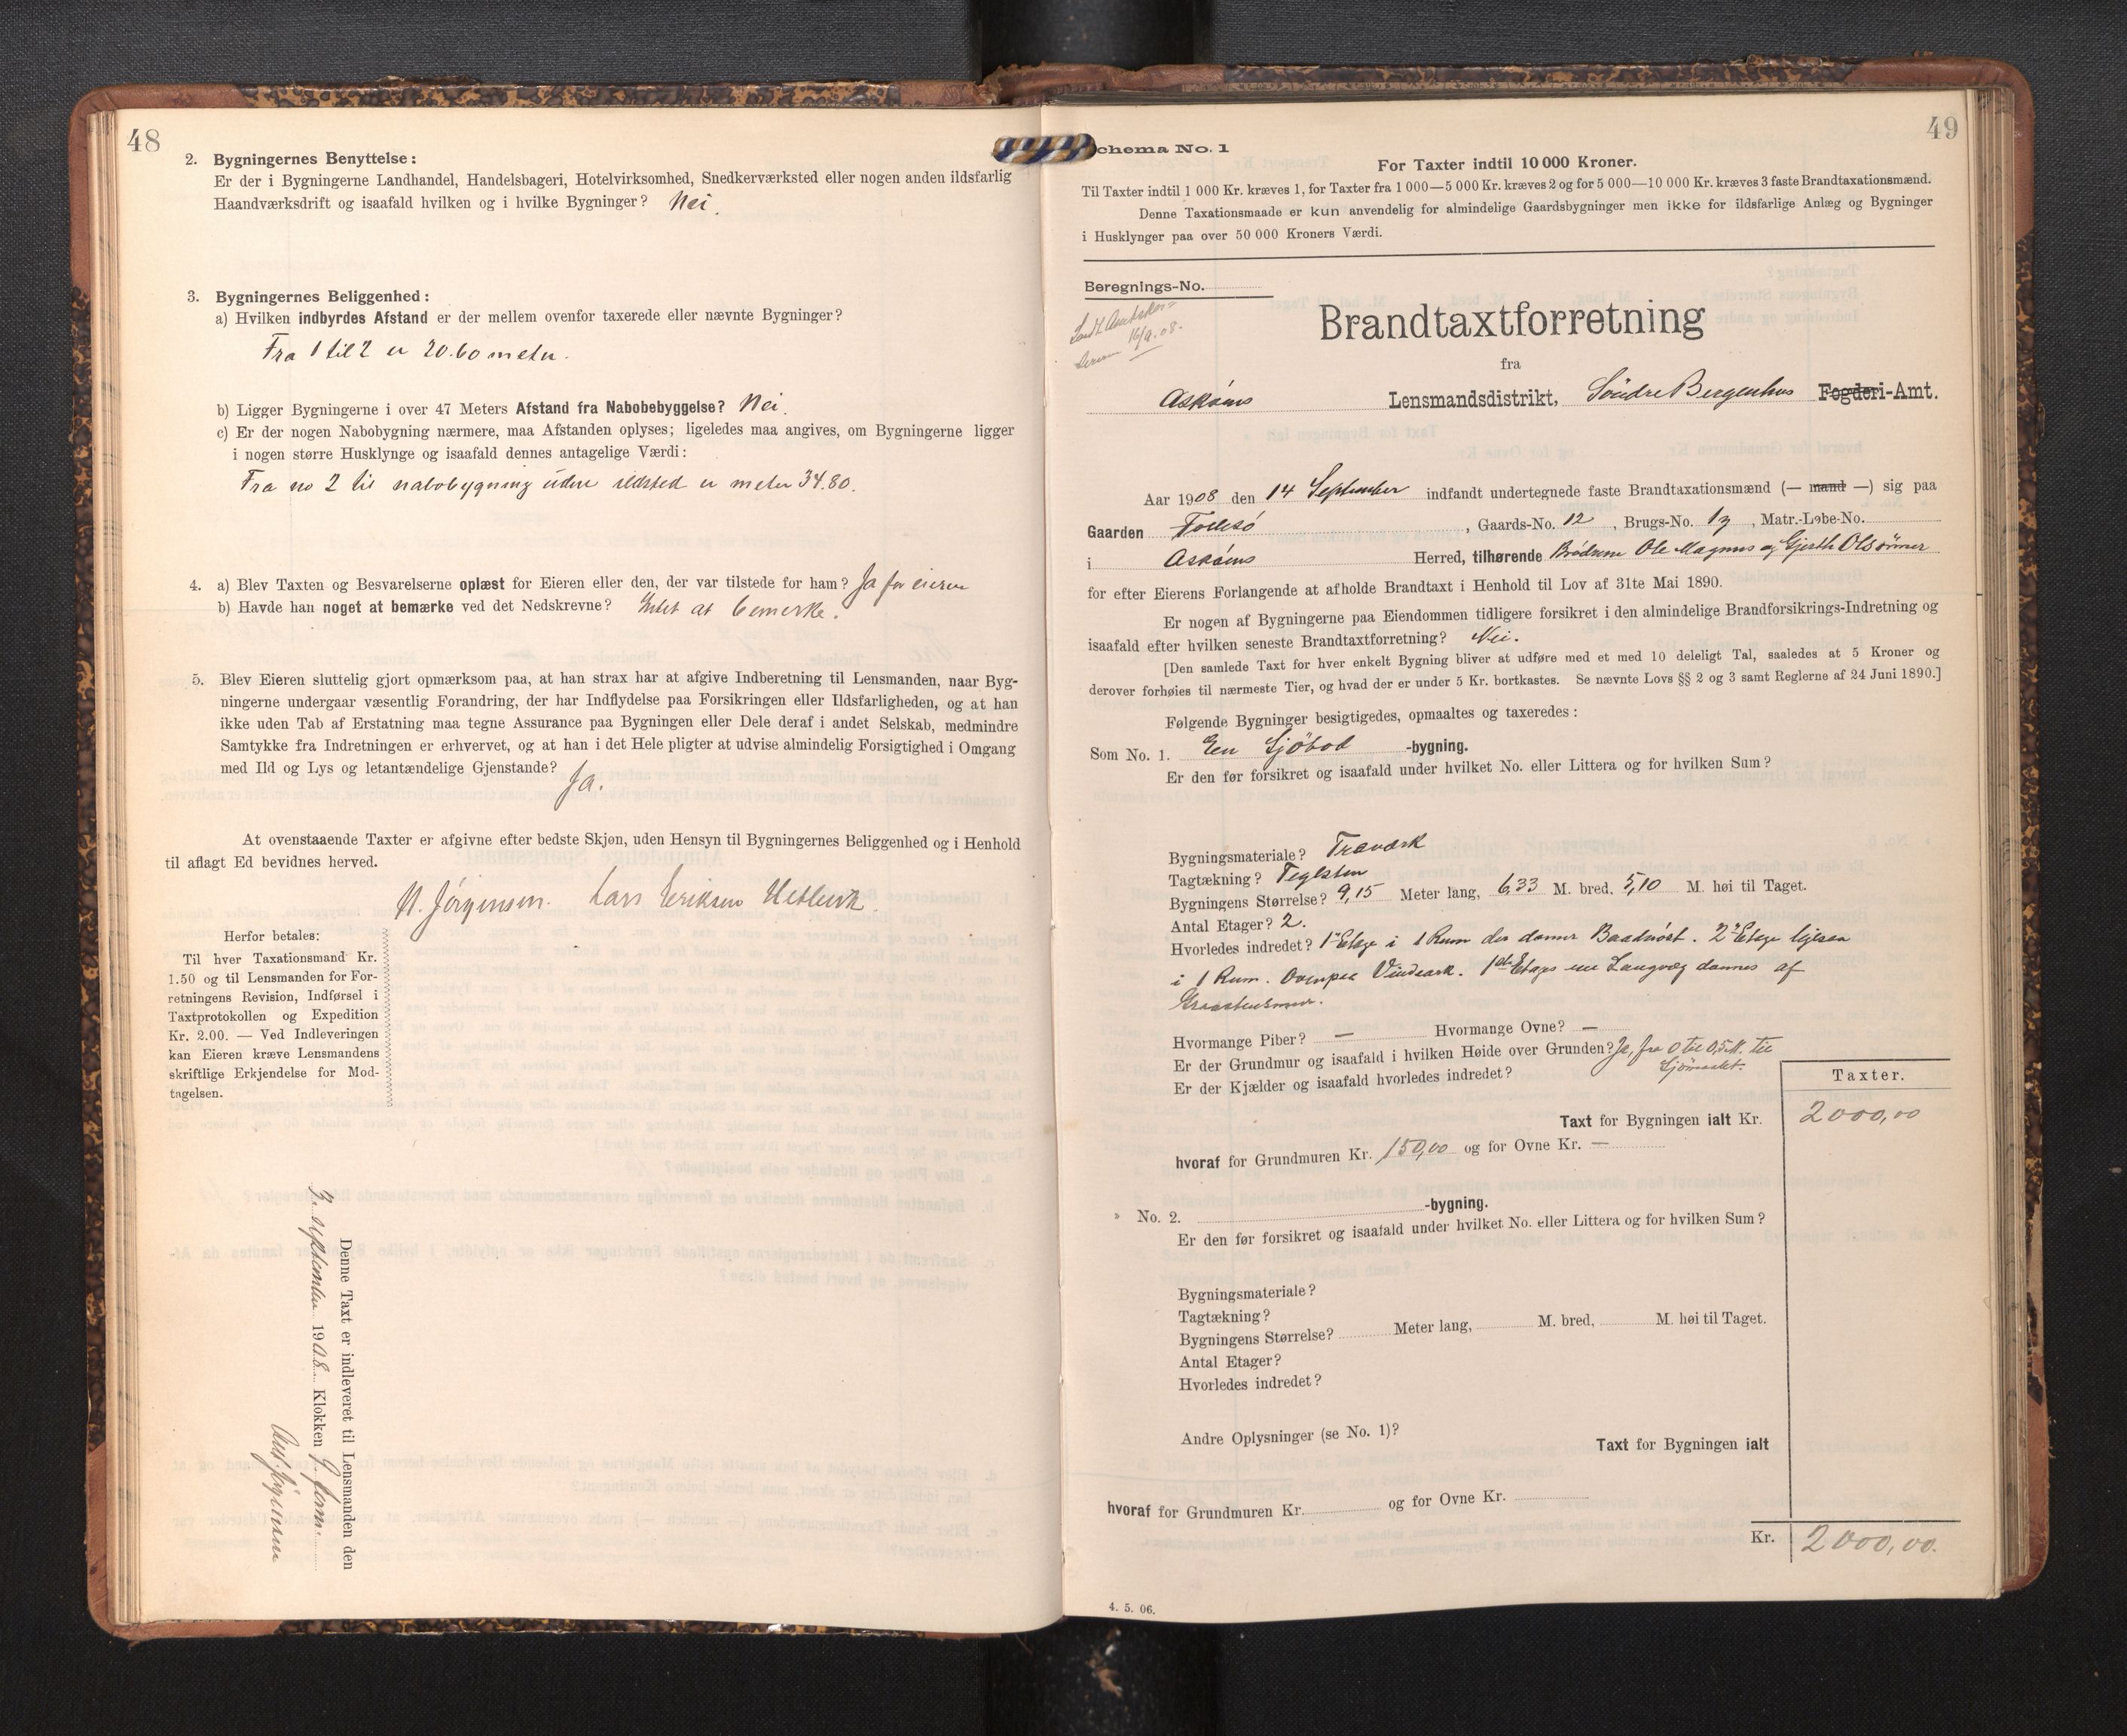 48
2. Bygningernes Benyttelse:
Er der i Bygningerne Landhandel, Handelsbageri, Hotelvirksomhed, Snedkerværksted eller nogen anden ildsfarlig
Haandværksdrift og isaafald hvilken og i hvilke Bygninger? Nei.
3. Bygningernes Beliggenhed:
a) Hvilken indbyrdes Afstand er der mellem ovenfor taxerede eller nævnte Bygninger?
Fra 1 til 2 er 20.60 meter.
b) Ligger Bygningerne i over 47 Meters Afstand fra Nabobebyggelse? Nei.
c) Er der nogen Nabobygning nærmere, maa Afstanden oplyses; ligeledes maa angives, om Bygningerne ligger
i nogen større Husklynge og isaafald dennes antagelige Værdi:
Fra no 2 til nabobygning uden ildsted er meter 34.80.
4. a) Blev Taxten og Besvarelserne oplæst for Eieren eller den, der var tilstede for ham? Ja for eieren
b) Havde han noget at bemærke ved det Nedskrevne? Intet at bemerke.
5. Blev Eieren sluttelig gjort opmærksom paa, at han strax har at afgive Indberetning til Lensmanden, naar Byg-
ningerne undergaar væsentlig Forandring, der har Indflydelse paa Forsikringen eller Ildsfarligheden, og at han
ikke uden Tab af Erstatning maa tegne Assurance paa Bygningen eller Dele deraf i andet Selskab, medmindre
Samtykke fra Indretningen er erhvervet, og at han i det Hele pligter at udvise almindelig Forsigtighed i Omgang
med Ild og Lys og letantændelige Gjenstande? Ja.
At ovenstaaende Taxter er afgivne efter bedste Skjøn, uden Hensyn til Bygningernes Beliggenhed og i Henhold
til aflagt Ed bevidnes herved.
N. Jörgensen. Lars Eriksen Hetlevik.
Herfor betales:
Til hver Taxationsmand Kr.
1.50 og til Lensmanden for For-
retningens Revision, Indførsel i
Taxtprotokollen og Expedition
Kr. 2.00. — Ved Indleveringen
kan Eieren kræve Lensmandens
skriftlige Erkjendelse for Mod-
tagelsen.
Denne Taxt er indleveret til Lensmanden den
September 1908. Klokken 9 form.
49
Schema No. 1
For Taxter indtil 10 000 Kroner.
Til Taxter indtil 1 000 Kr. kræves 1, for Taxter fra 1 000—5 000 Kr. kræves 2 og for 5 000—10 000 Kr. kræves 3 faste Brandtaxationsmænd.
Denne Taxationsmaade er kun anvendelig for almindelige Gaardsbygninger men ikke for ildsfarlige Anlæg og Bygninger
i Husklynger paa over 50 000 Kroners Værdi.
Beregnings-No.
16/9.08.
Brandtaxtforretning
fra
Askøens Lensmandsdistrikt, Söndre Bergenhus Fogderi-Amt.
Aar 1908 den 14 September indfandt undertegnede faste Brandtaxationsmænd (— mand —) sig paa
Gaarden Follesö, Gaards-No. 12, Brugs-No. 13, Matr.-Løbe-No.
i Askøens Herred, tilhørende Brödrene Ole Magnus og Gjerth Olsönner
for efter Eierens Forlangende at afholde Brandtaxt i Henhold til Lov af 31te Mai 1890.
Er nogen af Bygningerne paa Eiendommen tidligere forsikret i den almindelige Brandforsikrings-Indretning og
isaafald efter hvilken seneste Brandtaxtforretning? Nei.
[Den samlede Taxt for hver enkelt Bygning bliver at udføre med et med 10 deleligt Tal, saaledes at 5 Kroner og
derover forhøies til nærmeste Tier, og hvad der er under 5 Kr. bortkastes. Se nævnte Lovs §§ 2 og 3 samt Reglerne af 24 Juni 1890.]
Følgende Bygninger besigtigedes, opmaaltes og taxeredes:
Som No. 1. En Sjöbod -bygning.
Er den før forsikret og isaafald under hvilket No. eller Littera og for hvilken Sum?
Bygningsmateriale? Træværk
Tagtækning? Teglsten
Bygningens Størrelse? 9,15 Meter lang, 6,33 M. bred, 5,10 M. høi til Taget.
Antal Etager? 2.
Hvorledes indredet? 1ste Etage i 1 Rum der danner Baadnöst. 2den Etage ligesaa
i 1 Rum. Ovenpaa Vindsark. 1ste Etages ene Langvæg dannes af
Graastensmur.
Hvormange Piber? — Hvormange Ovne? —
Er der Grundmur og isaafald i hvilken Høide over Grunden? Ja, fra 0 til 0,5 M. til
Sjömaalet.
Er der Kjælder og isaafald hvorledes indredet?
Taxter.
Taxt for Bygningen ialt Kr. 2000,00
hvoraf for Grundmuren Kr. 150,00 og for Ovne Kr. —
» No. 2. -bygning.
Er den før forsikret og isaafald under hvilket No. eller Littera og for hvilken Sum?
Bygningsmateriale?
Tagtækning?
Bygningens Størrelse? Meter lang, M. bred, M. høi til Taget.
Antal Etager?
Hvorledes indredet?
Andre Oplysninger (se No. 1)?
Taxt for Bygningen ialt
hvoraf for Grundmuren Kr. og for Ovne Kr.
Kr. 2000,00.
4. 5. 06.